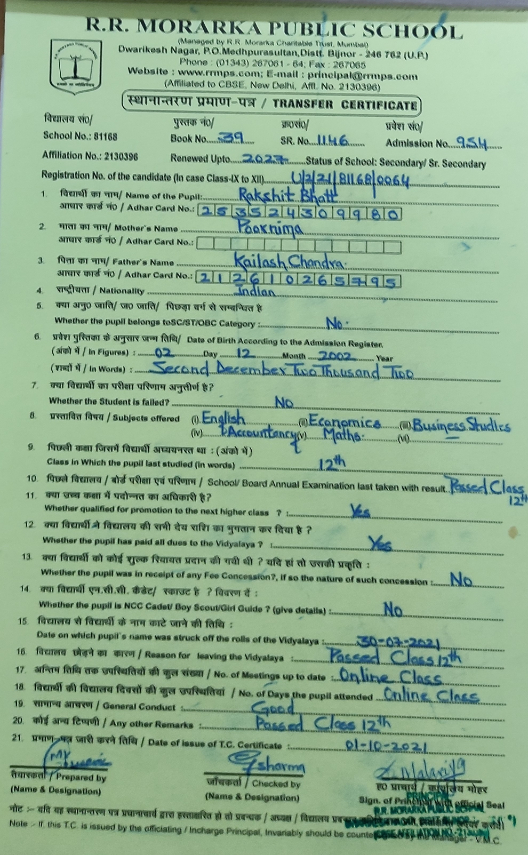 R.R. MORARKA PUBLIC SCHOOL
(Managed by R.R. Morarka Charitable Trust, Mumbai)
Dwarikesh Nagar, P.O.Medhpurasultan,Distt. Bijnor - 246 762 (U.P.)
Phone : (01343) 267061 - 64; Fax : 267065
Website : www.rrmps.com; E-mail : principal@rrmps.com
(Affiliated to CBSE, New Delhi, Affl. No. 2130396)
स्थानान्तरण प्रमाण-पत्र / TRANSFER CERTIFICATE
विद्यालय सं०/ पुस्तक सं०/ क्र०सं०/ प्रवेश सं०/
School No.: 81168 Book No. 39 SR. No. 1146 Admission No. 954
Affiliation No.: 2130396 Renewed Upto 2027 Status of School: Secondary/ Sr. Secondary
Registration No. of the candidate (In case Class-IX to XII) U/2/21/81168/0064
1. विद्यार्थी का नाम/ Name of the Pupil: Rakshit Bhatt
आधार कार्ड नं० / Adhar Card No.: 253524309980
2. माता का नाम/ Mother's Name Poornima
आधार कार्ड नं० / Adhar Card No.:
3. पिता का नाम/ Father's Name Kailash Chandra
आधार कार्ड नं० / Adhar Card No.: 212610265795
4. राष्ट्रीयता / Nationality Indian
5. क्या अनु० जाति/ ज० जाति/ पिछड़ा वर्ग से सम्बन्धित है
Whether the pupil belongs to SC/ST/OBC Category : No.
6. प्रवेश पुस्तिका के अनुसार जन्म तिथि/ Date of Birth According to the Admission Register.
(अंको में / In Figures) : 02 Day 12 Month 2002 Year
(शब्दों में / In Words) : Second December Two Thousand Two
7. क्या विद्यार्थी का परीक्षा परिणाम अनुत्तीर्ण है?
Whether the Student is failed? No
8. प्रस्तावित विषय / Subjects offered (i) English (ii) Economics (iii) Business Studies
(iv) Accountancy (v) Maths (vi)
9. पिछली कक्षा जिसमें विद्यार्थी अध्ययनरत था : (अंको में)
Class in Which the pupil last studied (in words) 12th
10. पिछले विद्यालय / बोर्ड परीक्षा एवं परिणाम / School/ Board Annual Examination last taken with result. Passed Class 12th
11. क्या उच्च कक्षा में पदोन्नत का अधिकारी है?
Whether qualified for promotion to the next higher class ? : Yes
12. क्या विद्यार्थी ने विद्यालय की सभी देय राशि का भुगतान कर दिया है ?
Whether the pupil has paid all duss to the Vidyalaya ? : Yes
13. क्या विद्यार्थी को कोई शुल्क रियायत प्रदान की गयी थी ? यदि हां तो उसकी प्रकृति :
Whether the pupil was in receipt of any Fee Concession?, If so the nature of such concession : No
14. क्या विद्यार्थी एन.सी.सी. कैडेट/ स्काउट है ? विवरण दें :
Whether the pupil is NCC Cadet/ Boy Scout/Girl Guide ? (give details) : No
15. विद्यालय से विद्यार्थी के नाम काटे जाने की तिथि :
Date on which pupil's name was struck off the rolls of the Vidyalaya : 30-07-2021
16. विद्यालय छोड़ने का कारण / Reason for leaving the Vidyalaya : Passed Class 12th
17. अन्तिम तिथि तक उपस्थितियों की कुल संख्या / No. of Meetings up to date : Online Class
18. विद्यार्थी की विद्यालय दिवसों की कुल उपस्थितियां / No. of Days the pupil attended Online Class
19. सामान्य आचरण / General Conduct : Good
20. कोई अन्य टिप्पणी / Any other Remarks : Passed Class 12th
21. प्रमाण-पत्र जारी करने तिथि / Date of issue of T.C. Certificate : 01-10-2021
sharma
तैयारकर्ता / Prepared by जाँचकर्ता / Checked by ह० प्राचार्य / कार्यालय मोहर
(Name & Designation) (Name & Designation) Sign. of Principal with official Seal
PRINCIPAL
R.R. MORARKA PUBLIC SCHOOL
नोट :- यदि यह स्थानान्तरण पत्र प्रधानाचार्य द्वारा हस्ताक्षरित हो तो प्रबन्धक / अध्यक्ष / विद्यालय
Note :- If, this T.C. is issued by the officiating / Incharge Principal, Invariably should be Manager - V.M.C.